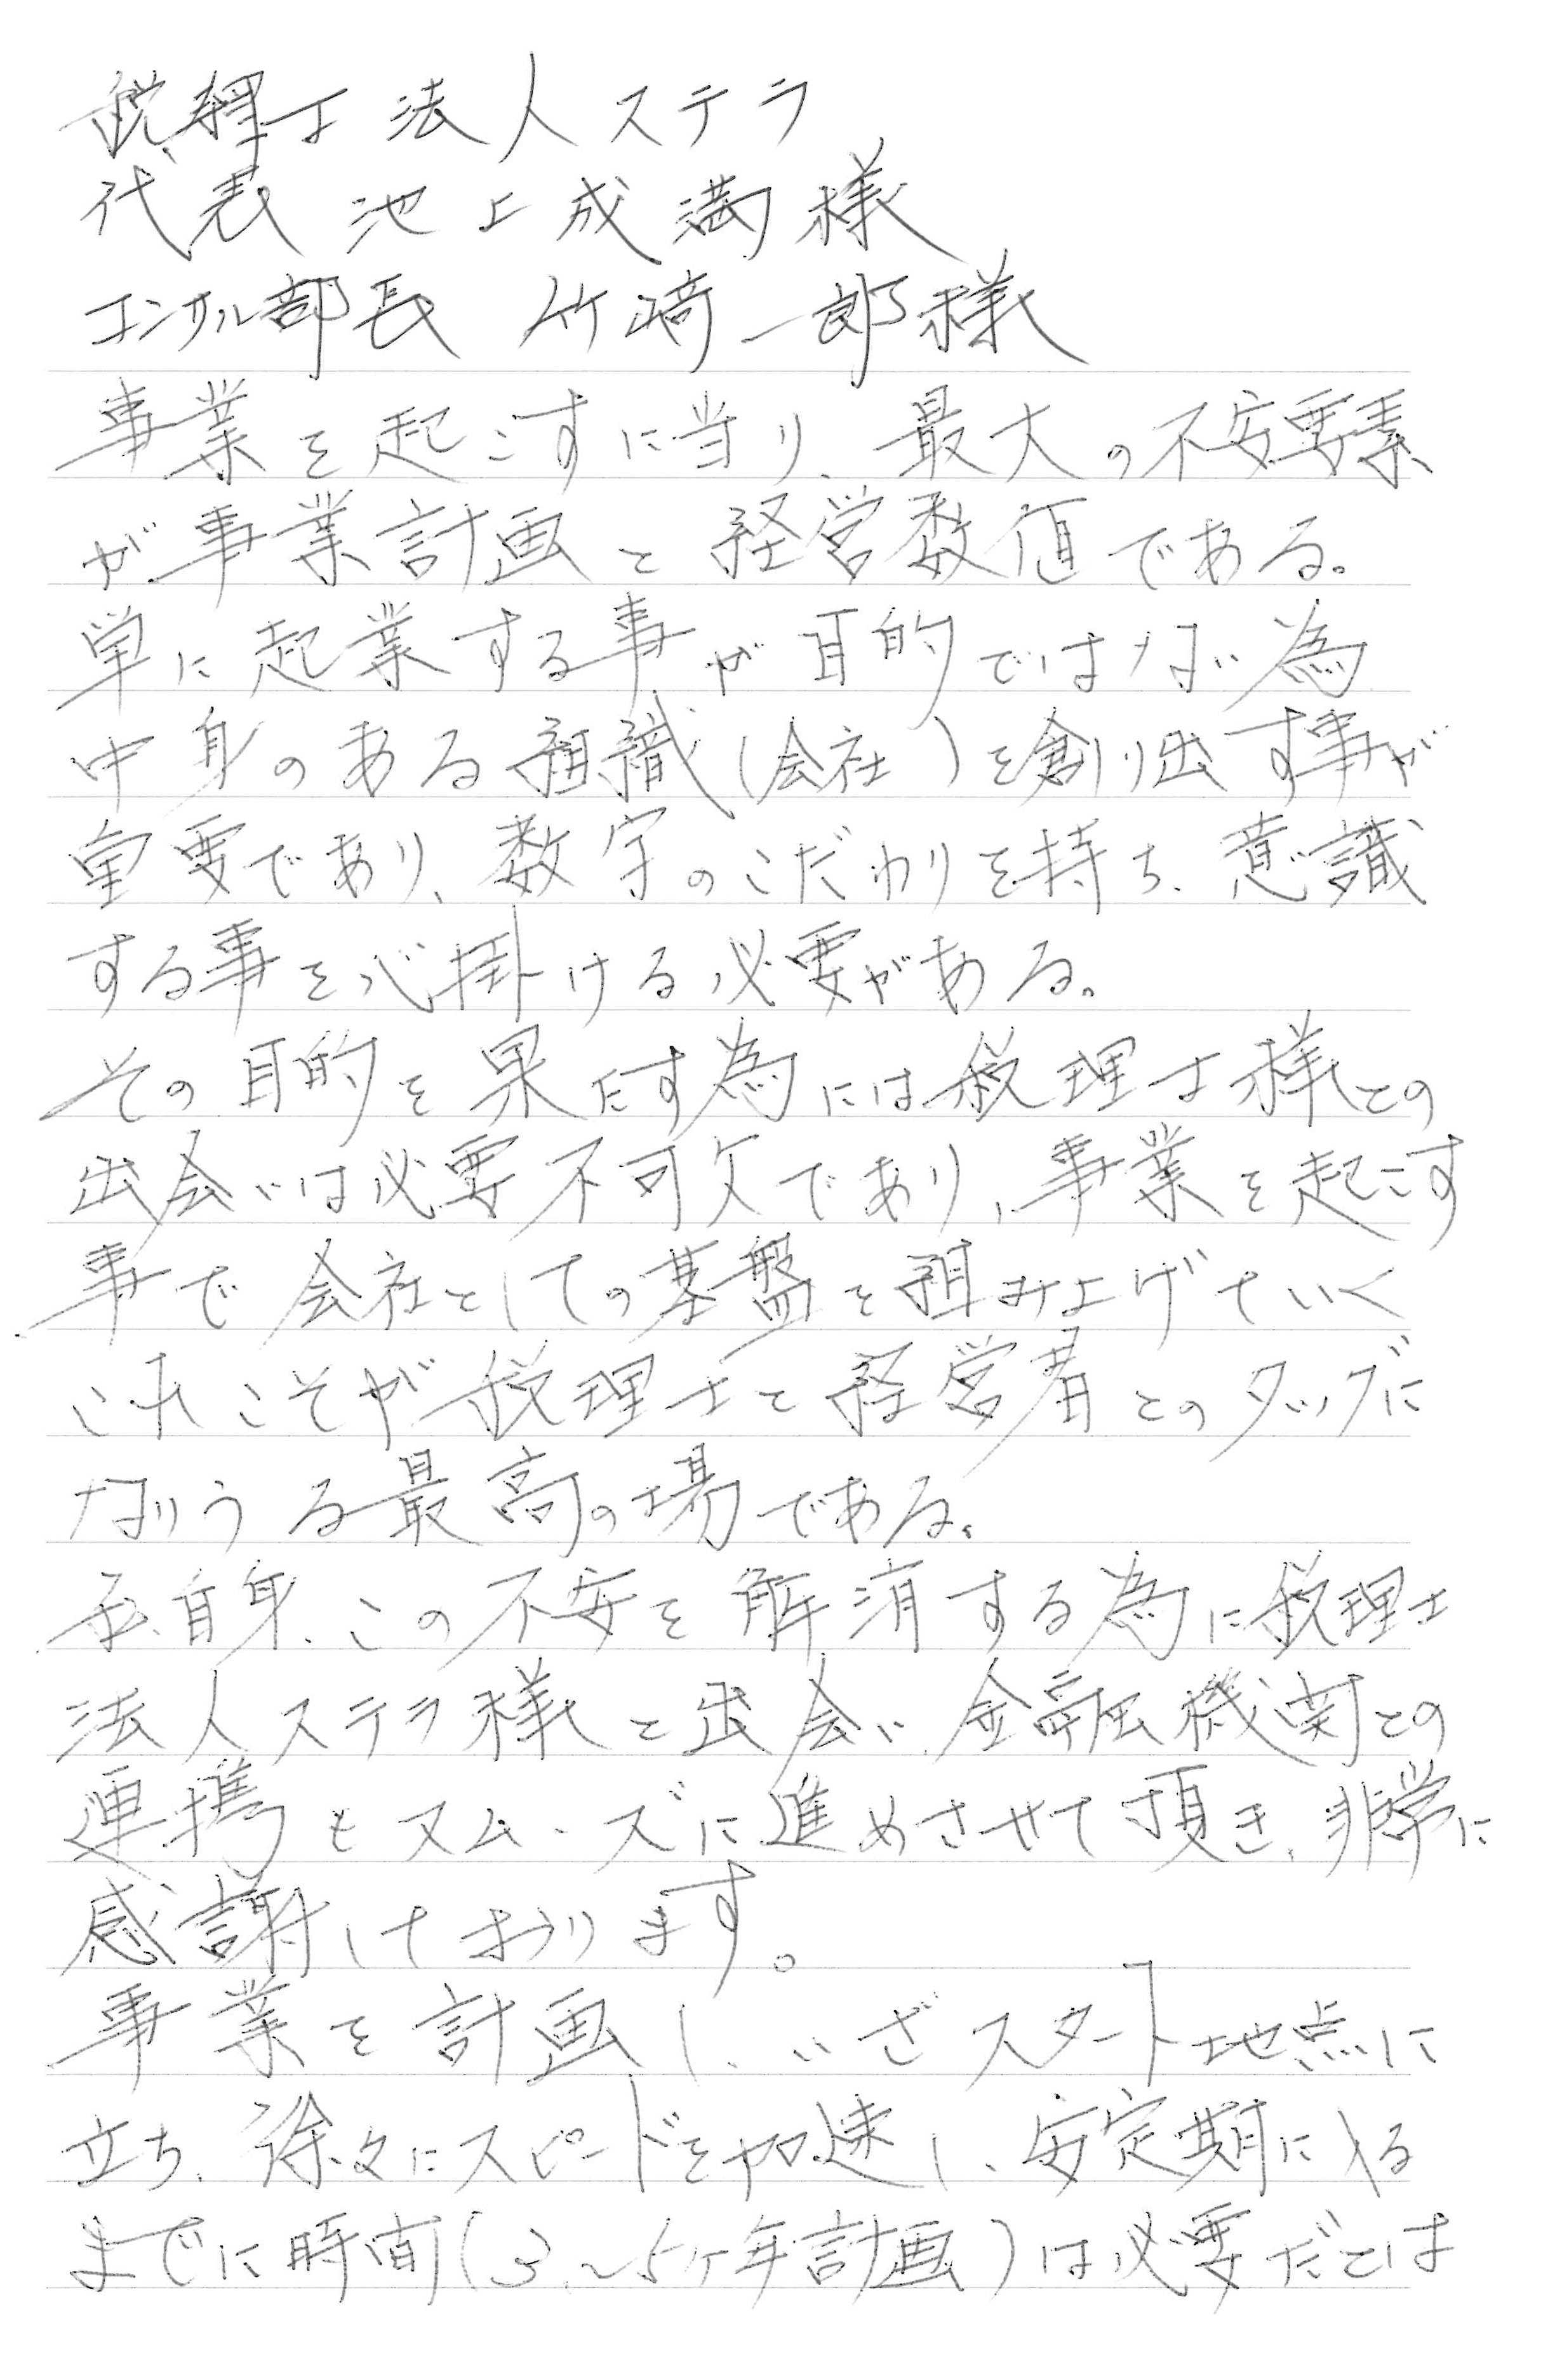 税理士法人ステラ
代表 池上成満様
コンサル部長 竹崎一郎様
事業を起こすに当り、最大の不安要素
が事業計画と経営数値である。
単に起業する事が目的ではない為
中身のある組織(会社)を創り出す事が
重要であり、数字のこだわりを持ち、意識
する事を心掛ける必要がある。
その目的を果たす為には税理士様との
出会いは必要不可欠であり、事業を起こす
事で会社としての基盤を組み上げていく
これこそが税理士と経営者とのタッグに
なりうる最高の場である。
私自身、この不安を解消する為に税理士
法人ステラ様と出会い、金融機関との
連携もスムーズに進めさせて頂き、非常に
感謝しております。
事業を計画し、いざスタート地点に
立ち、徐々にスピードを加速し、安定期に入る
までに時間(3〜5ヶ年計画)は必要だとは